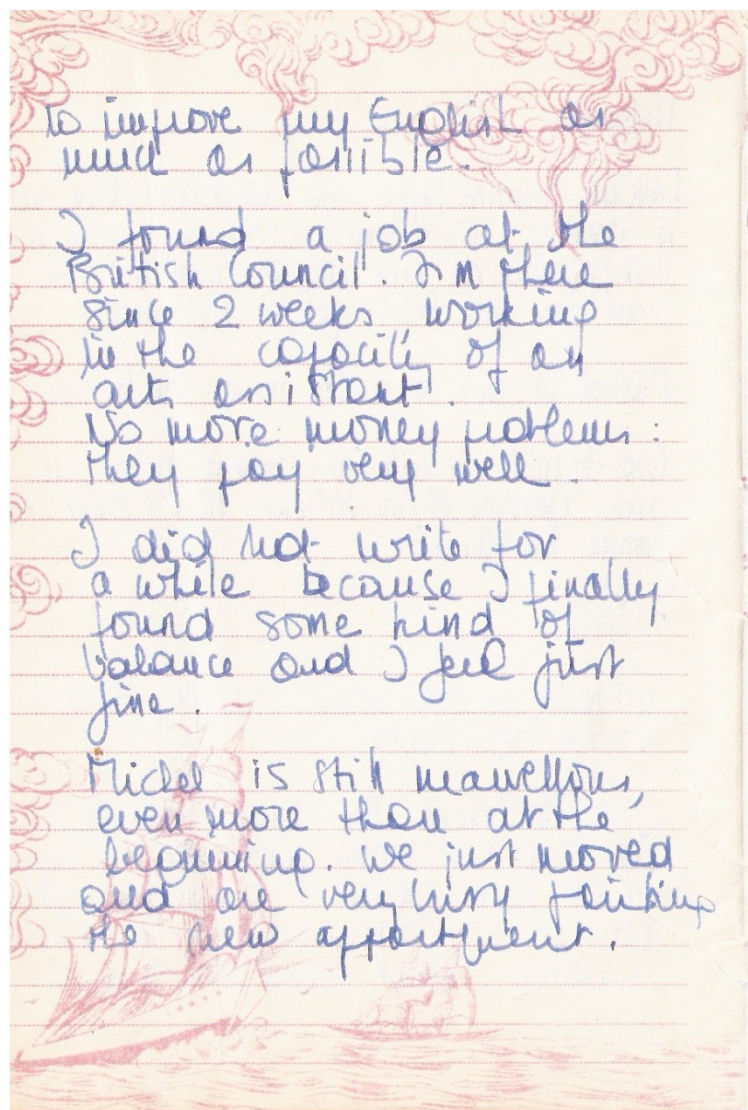 to improve my English as
much as possible.
I found a job at the
British Council. I'm there
since 2 weeks, working
in the capacity of an
arts assistant.
No more money problems:
they pay very well.
I did not write for
a while because I finally
found some kind of
balance and I feel just
fine.
Michel is still marvellous,
even more than at the
beginning. We just moved
and are very busy painting
the new appartment.